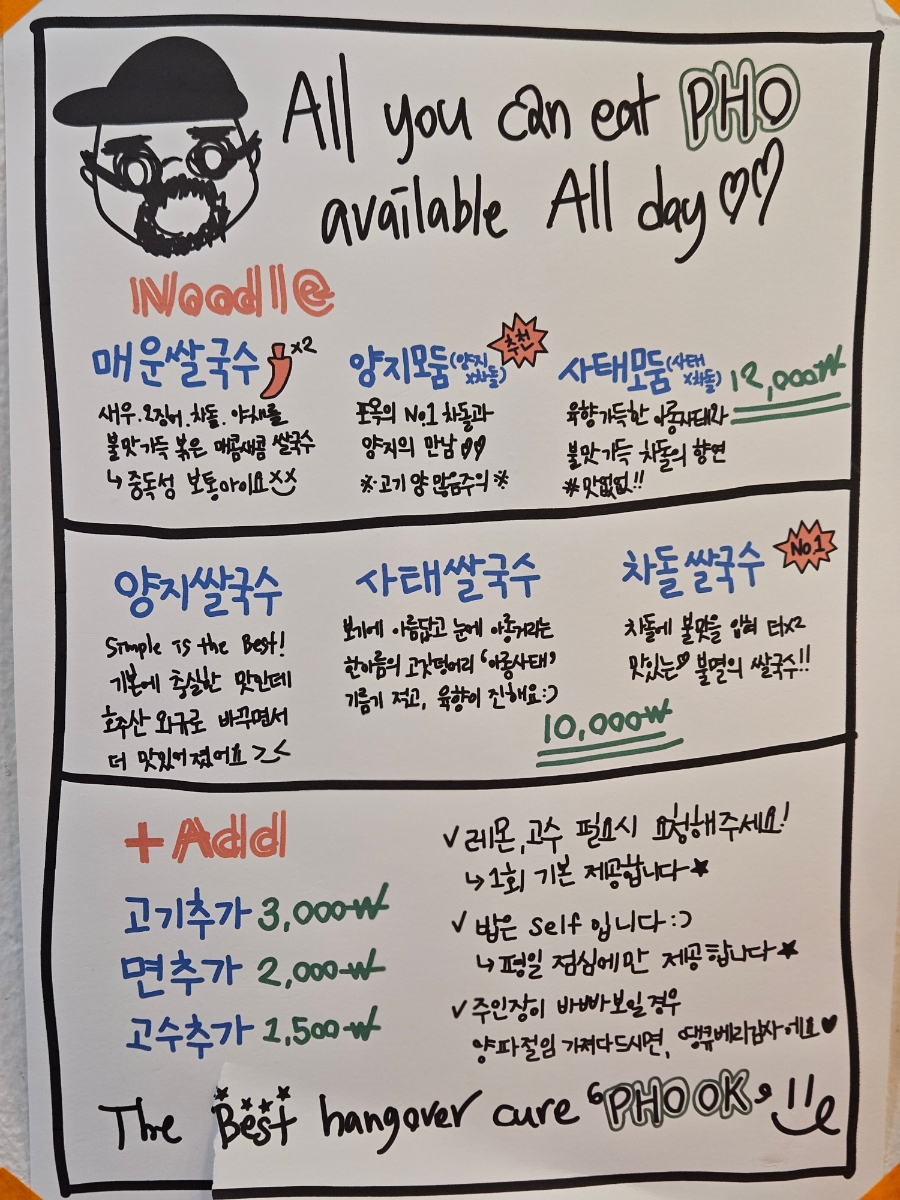 All you can eat PHO
available All day♡♡
Noodle
매운쌀국수 x2
새우.오징어.차돌.야채를
불맛가득 볶은 매콤새콤 쌀국수
↳ 중독성 보통아이요xx
양지모둠(양지x차돌) 추천
포옥의 No.1 차돌과
양지의 만남♡♡
※고기 양 많음주의※
사태모둠(사태x차돌) 12,000₩
육향가득한 아롱사태와
불맛가득 차돌의 향연
※맛없없!!
양지쌀국수
Simple is the Best!
기본에 충실한 맛인데
호주산 와규로 바꾸면서
더 맛있어졌어요 >.<
사태쌀국수
보기에 아름답고 눈에 아롱거리는
한아름의 고깃덩어리 '아롱사태'
기름기 적고, 육향이 진해요:)
차돌쌀국수 No1
차돌에 불맛을 입혀 더x2
맛있는♡ 불멸의 쌀국수!!
10,000₩
+Add
고기추가 3,000₩
면추가 2,000₩
고수추가 1,500₩
✓레몬,고수 필요시 요청해주세요!
↳1회 기본 제공합니다★
✓ 밥은 self 입니다:)
↳평일 점심에만 제공합니다★
✓주인장이 바빠보일경우
양파절임 가져다드시면, 땡큐베리감사에요♥
The Best hangover cure "PHO OK"